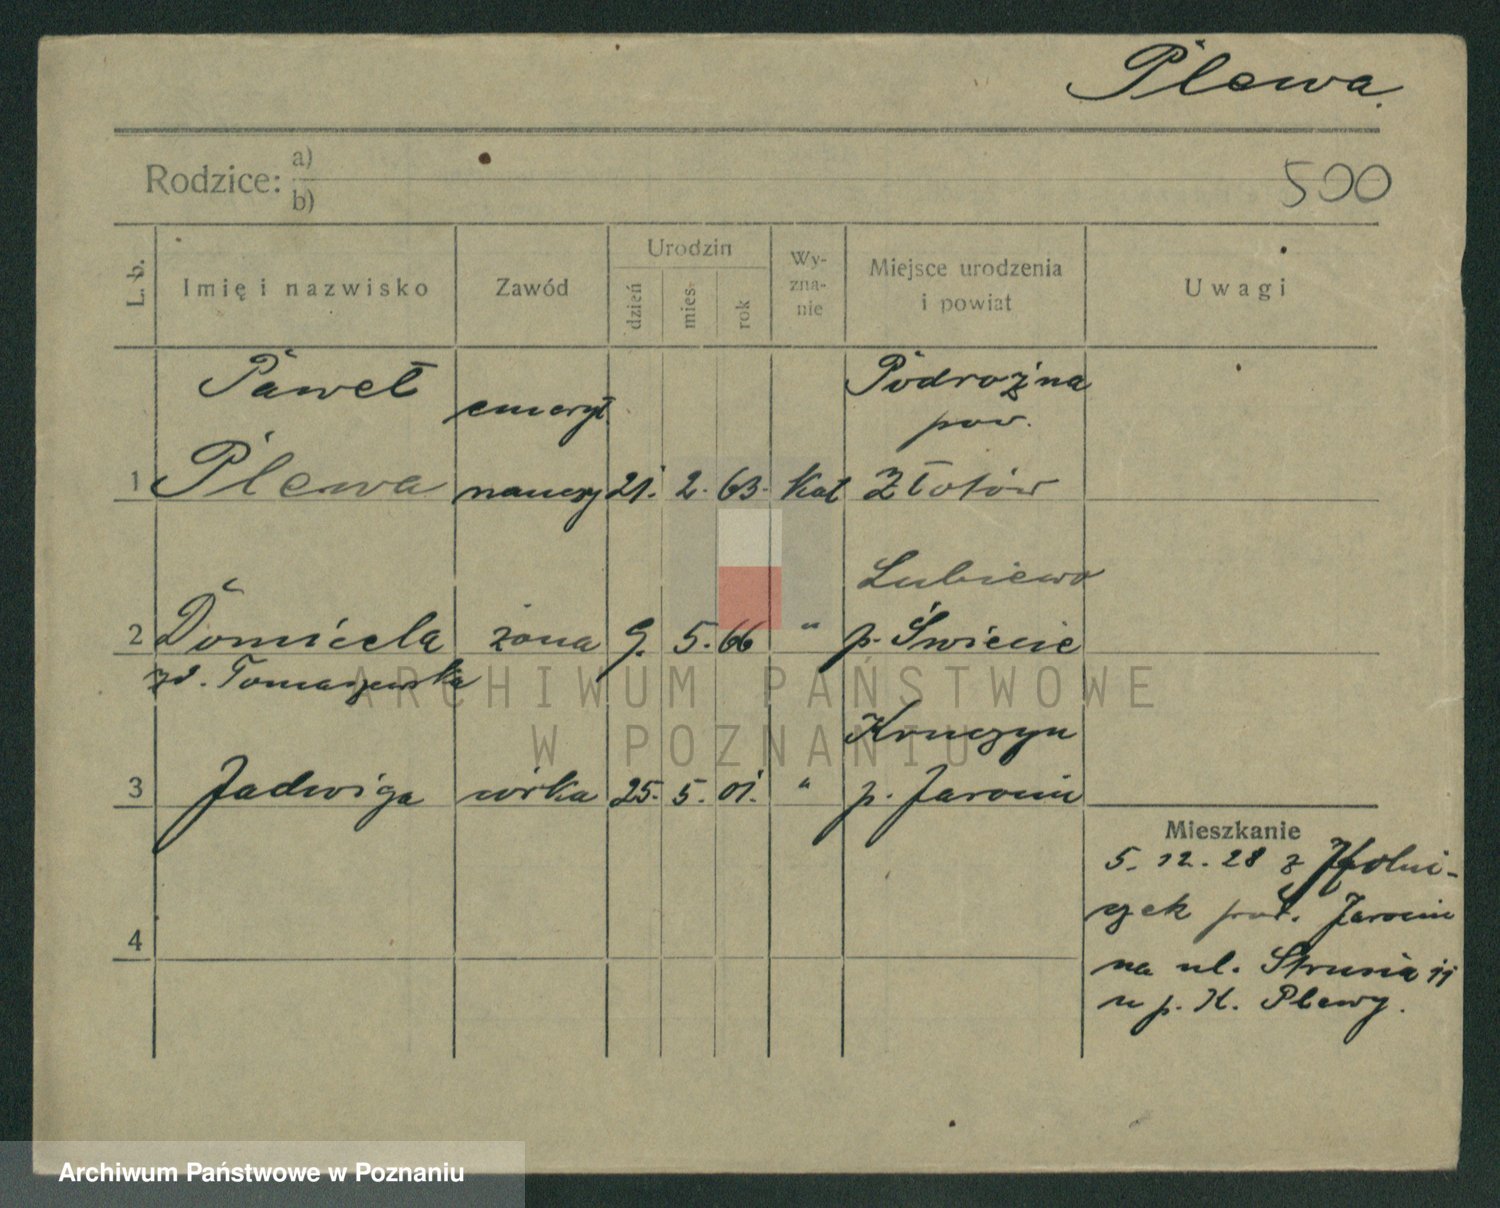 Plewa.
Rodzice: a)
b)
500
L. b.
Imię i nazwisko
Zawód
Urodzin
dzień
mies.
rok
Wy-
zna-
nie
Miejsce urodzenia
i powiat
Uwagi
Paweł emeryt. Podrożna
pow.
1 Plewa nauczy 21. 2. 63. kat Złotów
Lubiewo
2 Domicela żona 9. 5. 66 " p. Świecie
zd. Tomaszewska
Kruczyn
3 Jadwiga córka 25. 5. 01. " p. Jarocin
Mieszkanie
5. 12. 28 z
czek pow. Jarocin
4
na ul. Strusia 11
u p. K. Plewy.
ARCHIWUM PAŃSTWOWE
W POZNANIU
Archiwum Państwowe w Poznaniu